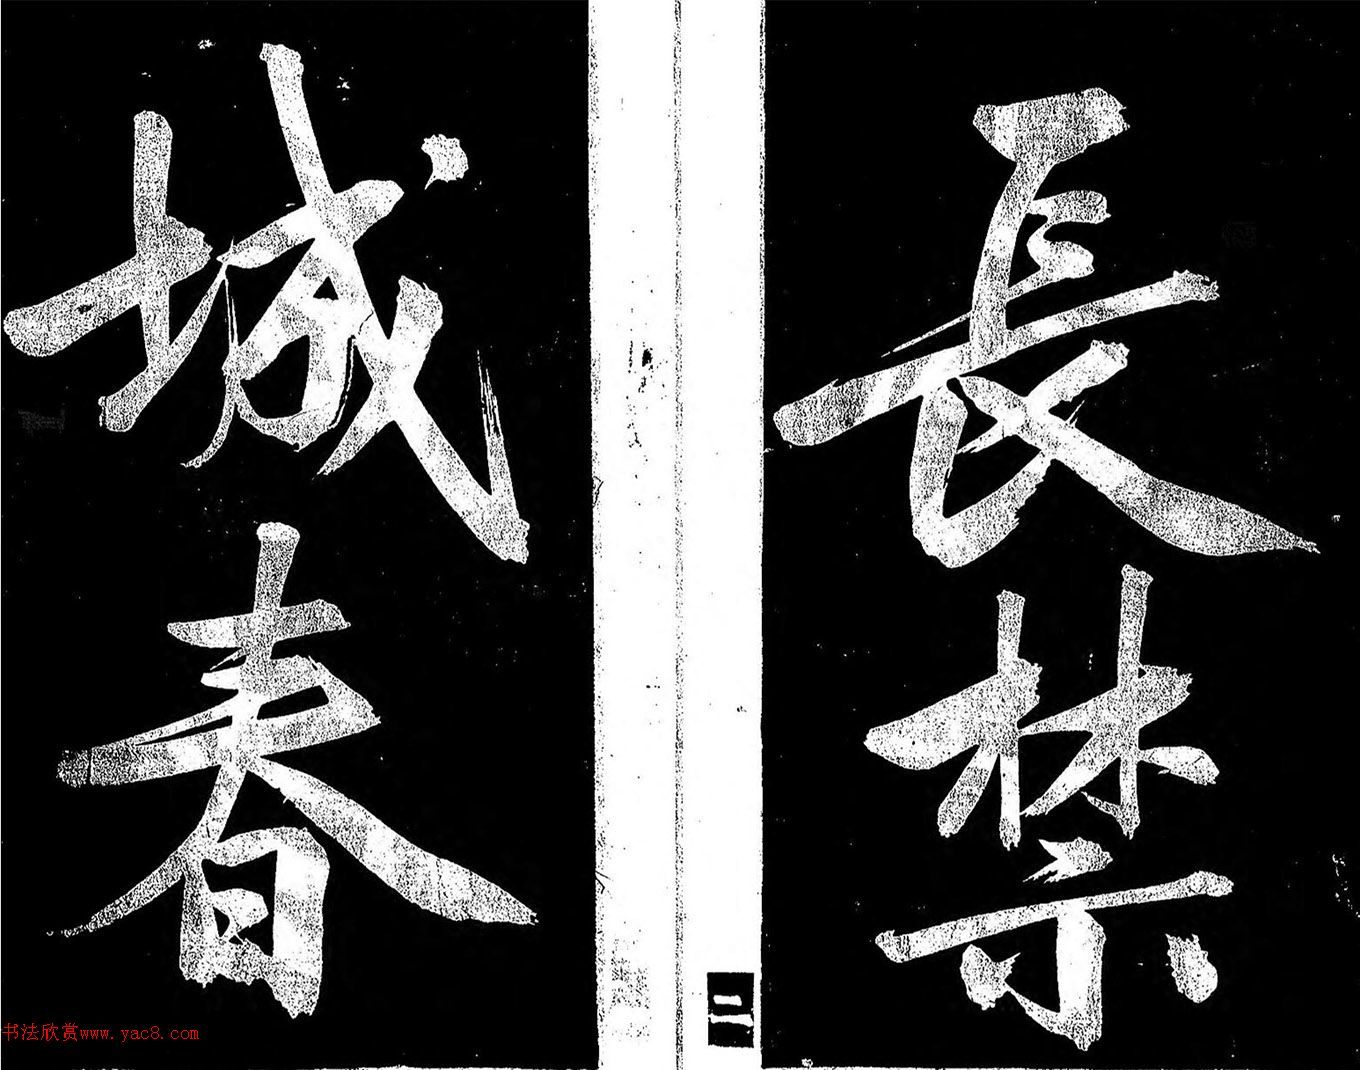 長禁
城春
书法欣赏www.yac8.com